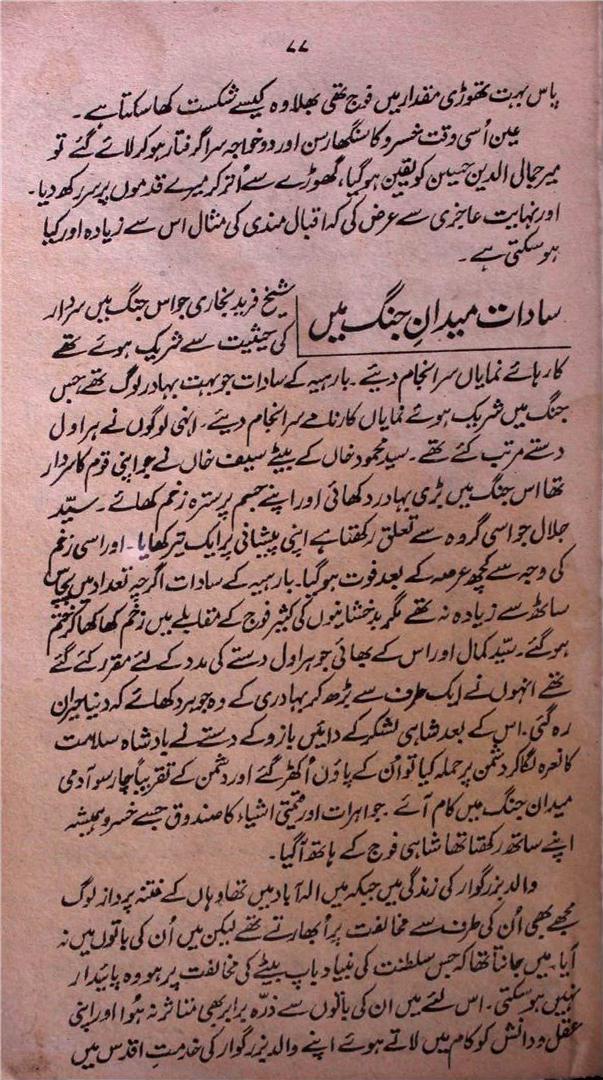 ۷۷
پاس بہت تھوڑی مقدار میں فوج تھی بھلا وہ کیسے شکست کھا سکتا ہے۔
عین اُسی وقت خسرو کا سنگھارسن اور دو خواجہ سرا گرفتار ہو کر لائے گئے تو
میر جمالی الدین حسین کو یقین ہو گیا، گھوڑے سے اُتر کر میرے قدموں پر سر رکھ دیا۔
اور نہایت عاجزی سے عرض کی کہ اقبال مندی کی مثال اس سے زیادہ اور کیا
ہو سکتی ہے۔
سادات میدانِ جنگ میں
شیخ فرید بخاری جو اس جنگ میں سردار
کی حیثیت سے شریک ہوئے تھے
کارہائے نمایاں سرانجام دیئے۔ بارہیہ کے سادات جو بہت بہادر لوگ تھے جس
جنگ میں شریک ہوئے نمایاں کارنامے سرانجام دیئے۔ انہی لوگوں نے ہراول
دستے مرتب کئے تھے۔ سید محمود خاں کے بیٹے سیف خاں نے جو اپنی قوم کا سردار
تھا اس جنگ میں بڑی بہادر دکھائی اور اپنے جسم پر سترہ زخم کھائے۔ سیّد
جلال جو اسی گروہ سے تعلق رکھتا ہے اپنی پیشانی پر ایک تیر کھایا۔ اور اسی زخم
کی وجہ سے کچھ عرصہ کے بعد فوت ہو گیا۔ بارہیہ کے سادات اگرچہ تعداد میں پچاس
ساٹھ سے زیادہ نہ تھے مگر بدخشانیوں کی کثیر فوج کے مقابلے میں زخم کھا کھا کر ختم
ہو گئے۔ سیّد کمال اور اس کے بھائی جو ہراول دستے کی مدد کے لئے مقرر کئے گئے
تھے انہوں نے ایک طرف سے بڑھ کر بہادری کے وہ جوہر دکھائے کہ دنیا حیران
رہ گئی۔ اس کے بعد شاہی لشکر کے دائیں بازو کے دستے نے بادشاہ سلامت
کا نعرہ لگا کر دشمن پر حملہ کیا تو اُن کے پاؤں اُکھڑ گئے اور دشمن کے تقریباً چار سو آدمی
میدانِ جنگ میں کام آئے۔ جواہرات اور قیمتی اشیاء کا صندوق جسے خسرو ہمیشہ
اپنے ساتھ رکھتا تھا شاہی فوج کے ہاتھ آ گیا۔
والد بزرگوار کی زندگی میں جبکہ میں الہ آباد میں تھا وہاں کے فتنہ پرداز لوگ
مجھے بھی اُن کی طرف سے مخالفت پر اُبھارتے تھے لیکن میں اُن کی باتوں میں نہ
آیا۔ میں جانتا تھا کہ جس سلطنت کی بنیاد باپ بیٹے کی مخالفت پر ہو وہ پائیدار
نہیں ہو سکتی۔ اس لئے میں ان کی باتوں سے ذرّہ برابر بھی متاثر نہ ہُوا اور اپنی
عقل و دانش کو کام میں لاتے ہوئے اپنے والد بزرگوار کی خدمتِ اقدس میں